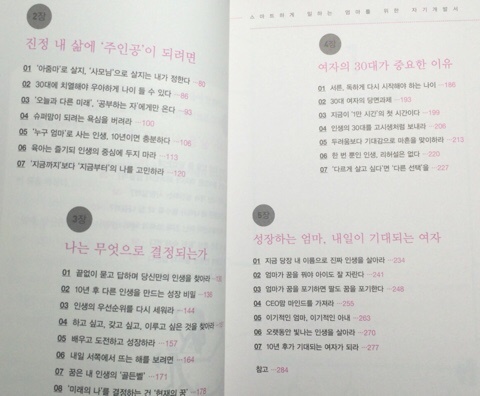 2장
진정 내 삶에 '주인공'이 되려면
01 '아줌마'로 살지, '사모님'으로 살지는 내가 정한다 —80
02 30대에 치열해야 우아하게 나이 들 수 있다 —86
03 '오늘과 다른 미래', '공부하는 자'에게만 온다 —93
04 슈퍼맘이 되려는 욕심을 버려라 —100
05 '누구 엄마'로 사는 인생, 10년이면 충분하다 —106
06 육아는 즐기되 인생의 중심에 두지 마라 —113
07 '지금까지'보다 '지금부터'의 나를 고민하라 —120
3장
나는 무엇으로 결정되는가
01 끝없이 묻고 답하며 당신만의 인생을 찾아라
02 10년 후 다른 인생을 만드는 성장 비밀
03 인생의 우선순위를 다시 세워라 —144
04 하고 싶고, 갖고 싶고, 이루고 싶은 것을 찾아라
05 배우고 도전하고 성장하라 —157
06 내일 서쪽에서 뜨는 해를 보려면 —164
07 꿈은 내 인생의 '골든벨' —171
08 '미래의 나'를 결정하는 건 '현재의 꿈' —178
스마트하게 일하는 엄마를 위한 자기계발서
4장
여자의 30대가 중요한 이유
01 서른, 독하게 다시 시작해야 하는 나이 —186
02 30대 여자의 당면과제 —193
03 지금이 '1만 시간'의 첫 시간이다 —199
04 인생의 30대를 고시생처럼 보내라 —206
05 두려움보다 기대감으로 마흔을 맞이하라 —213
06 한 번 뿐인 인생, 리허설은 없다 —220
07 '다르게 살고 싶다'면 '다른 선택'을 —227
5장
성장하는 엄마, 내일이 기대되는 여자
01 지금 당장 내 이름으로 진짜 인생을 살아라 —234
02 엄마가 꿈을 꿔야 아이도 잘 자란다 —241
03 엄마가 꿈을 포기하면 딸도 꿈을 포기한다 —248
04 CEO맘 마인드를 가져라 —255
05 이기적인 엄마, 이기적인 아내 —263
06 오랫동안 빛나는 인생을 살아라 —270
07 10년 후가 기대되는 여자가 되라 —277
참고 —284